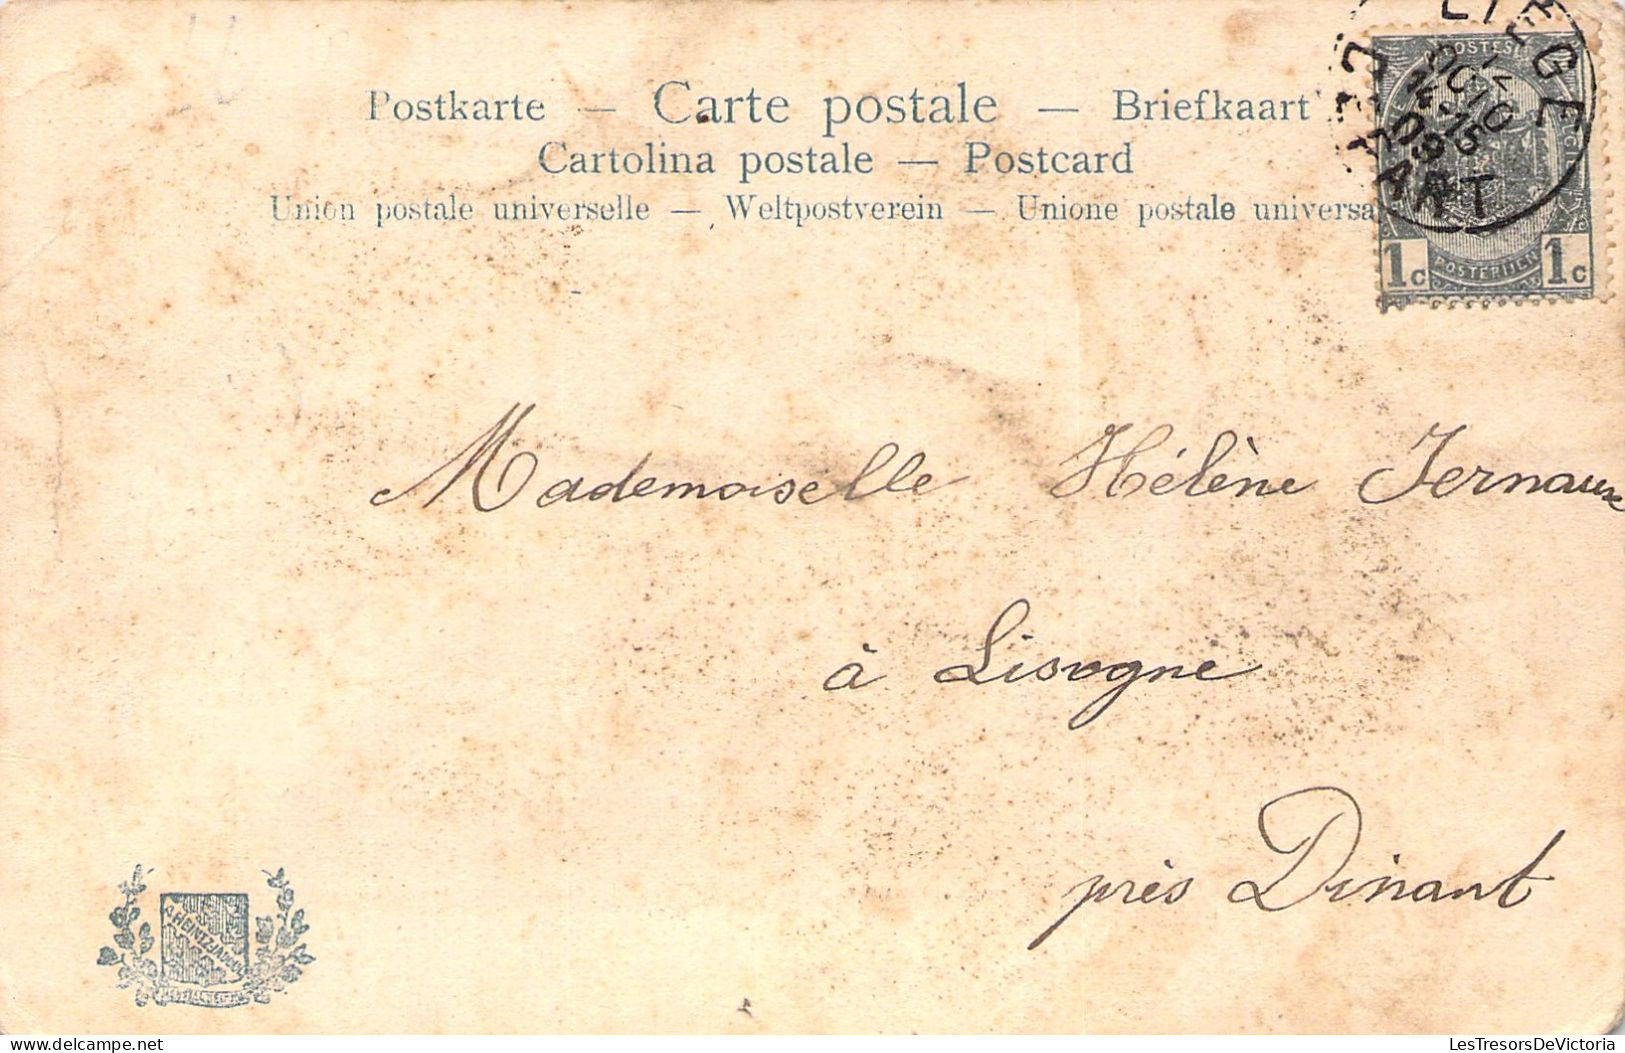 Postkarte — Carte postale — Briefkaart
Cartolina postale — Postcard
Union postale universelle — Weltpostverein — Unione postale universa
LIEGE
DÉPART
POSTES
1c POSTERIJEN 1c
Mademoiselle Hélène Jernaux
à Lisogne
près Dinant
A. HEINTZ JADOUL
LesTresorsDeVictoria